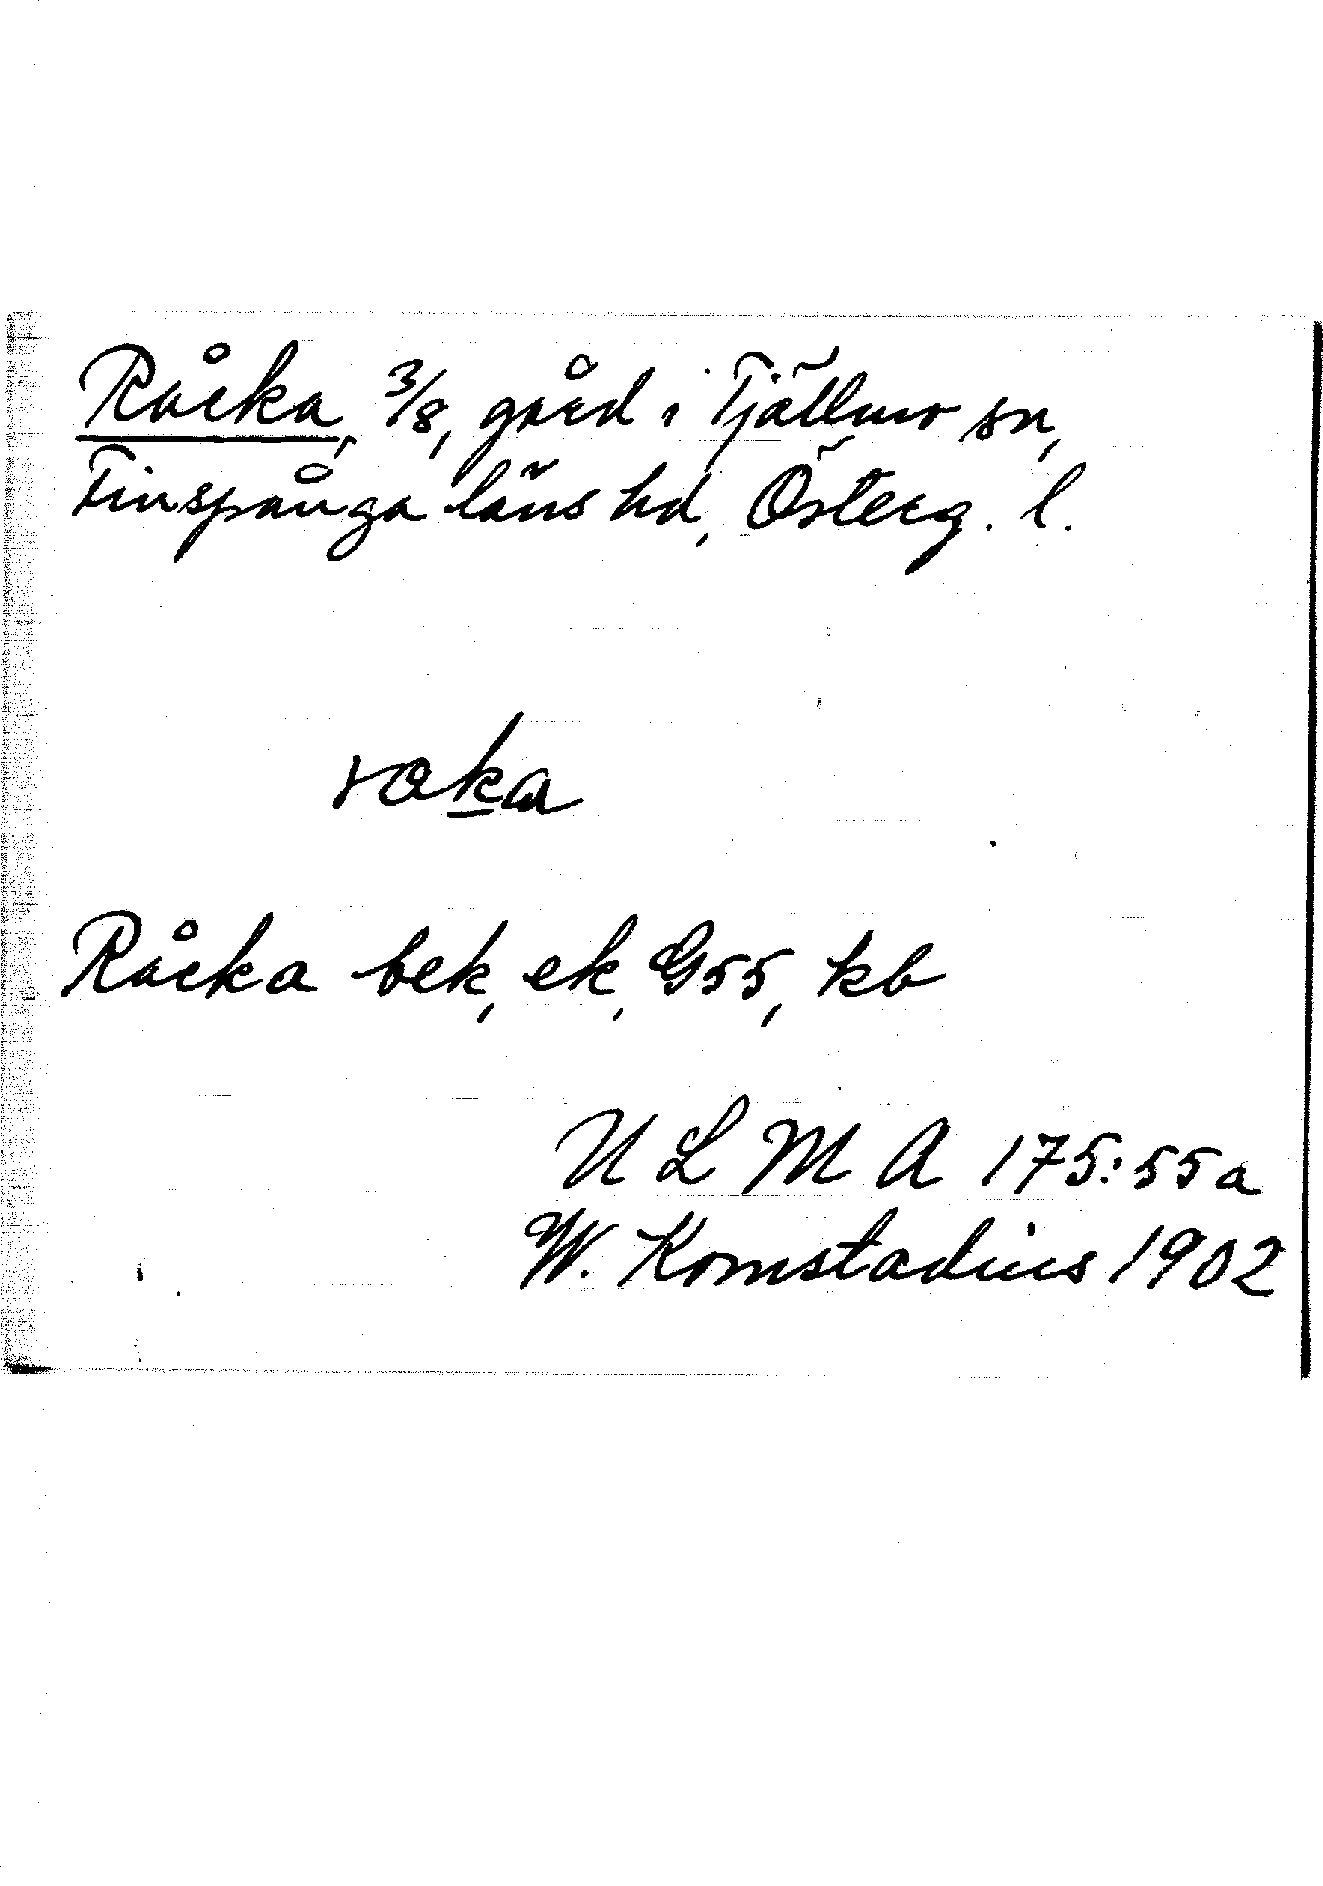 Råcka, 3/8, gård i Tjällmo sn,
Finspånga läns hd, Österg. l.
raka
Råcka bek, ek, G55, kb
ULMA 175:55a
W. Komstadius 1902